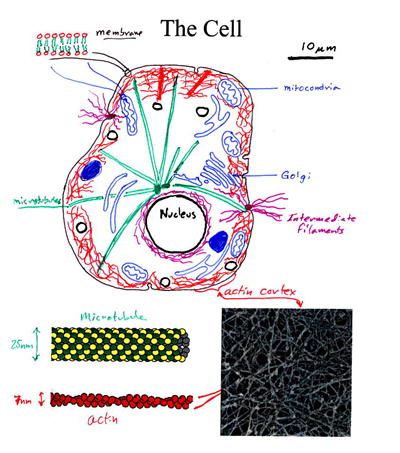 The Cell
membrane
10µm
mitocondria
Golgi
microtubules
Nucleus
Intermediate
Filaments
actin cortex
Microtubule
25nm
7nm
actin